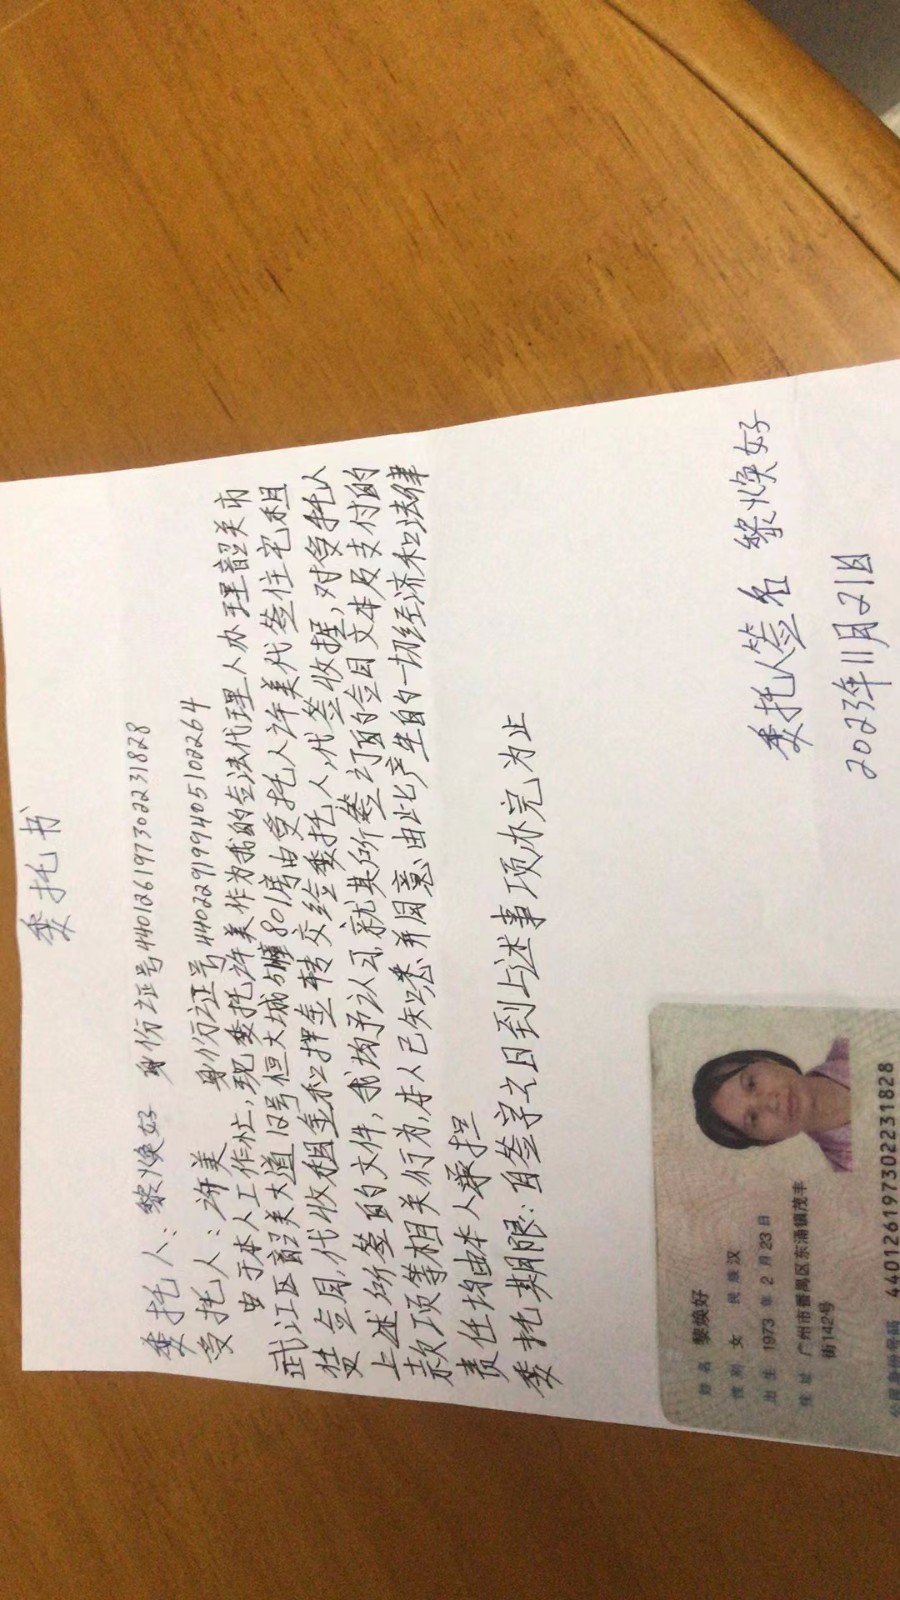 委托书
委托人：黎焕好 身份证号440126197302231828
受托人：许美 身份证号440229199405102264
由于本人工作忙，现委托许美作为我的合法代理人办理韶关市
武江区韶关大道12号恒大城 801房由受托人许美代签住宅租
赁合同，代收租金和押金转交给委托人，代签收据，对受托人
上述所签的文件，我均予认可，就其所签订的合同文本及支付的
款项等相关行为，本人已知悉并同意由此产生的一切经济和法律
责任均由本人承担
委托期限：自签字之日到上述事项办完为止
委托人签名 黎焕好
2023年11月21日
姓名 黎焕好
性别 女 民族 汉
出生 1973 年 2 月 23 日
住址 广州市番禺区东涌镇茂丰
街142号
公民身份号码 440126197302231828